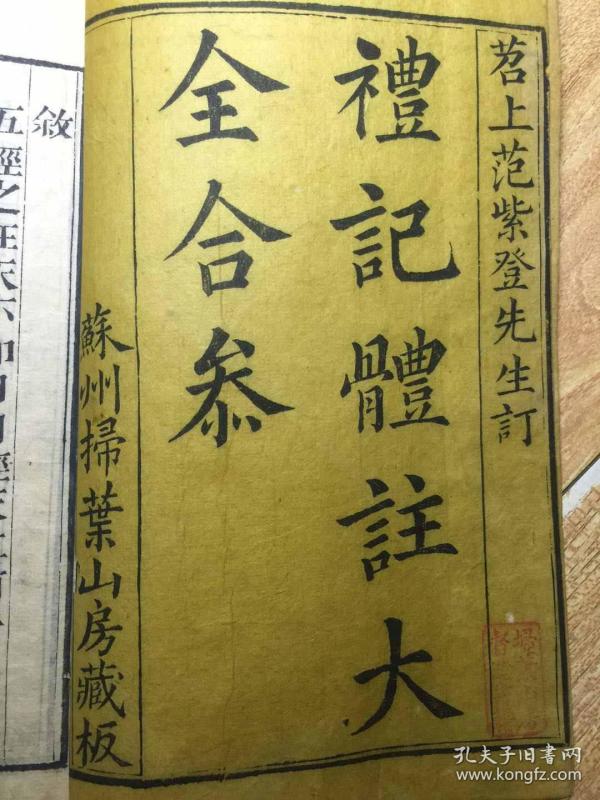 苕上范紫登先生訂
禮記體註大
全合叅
蘇州掃葉山房藏板
敘
五經之在天
孔夫子旧书网
www.kongfz.com